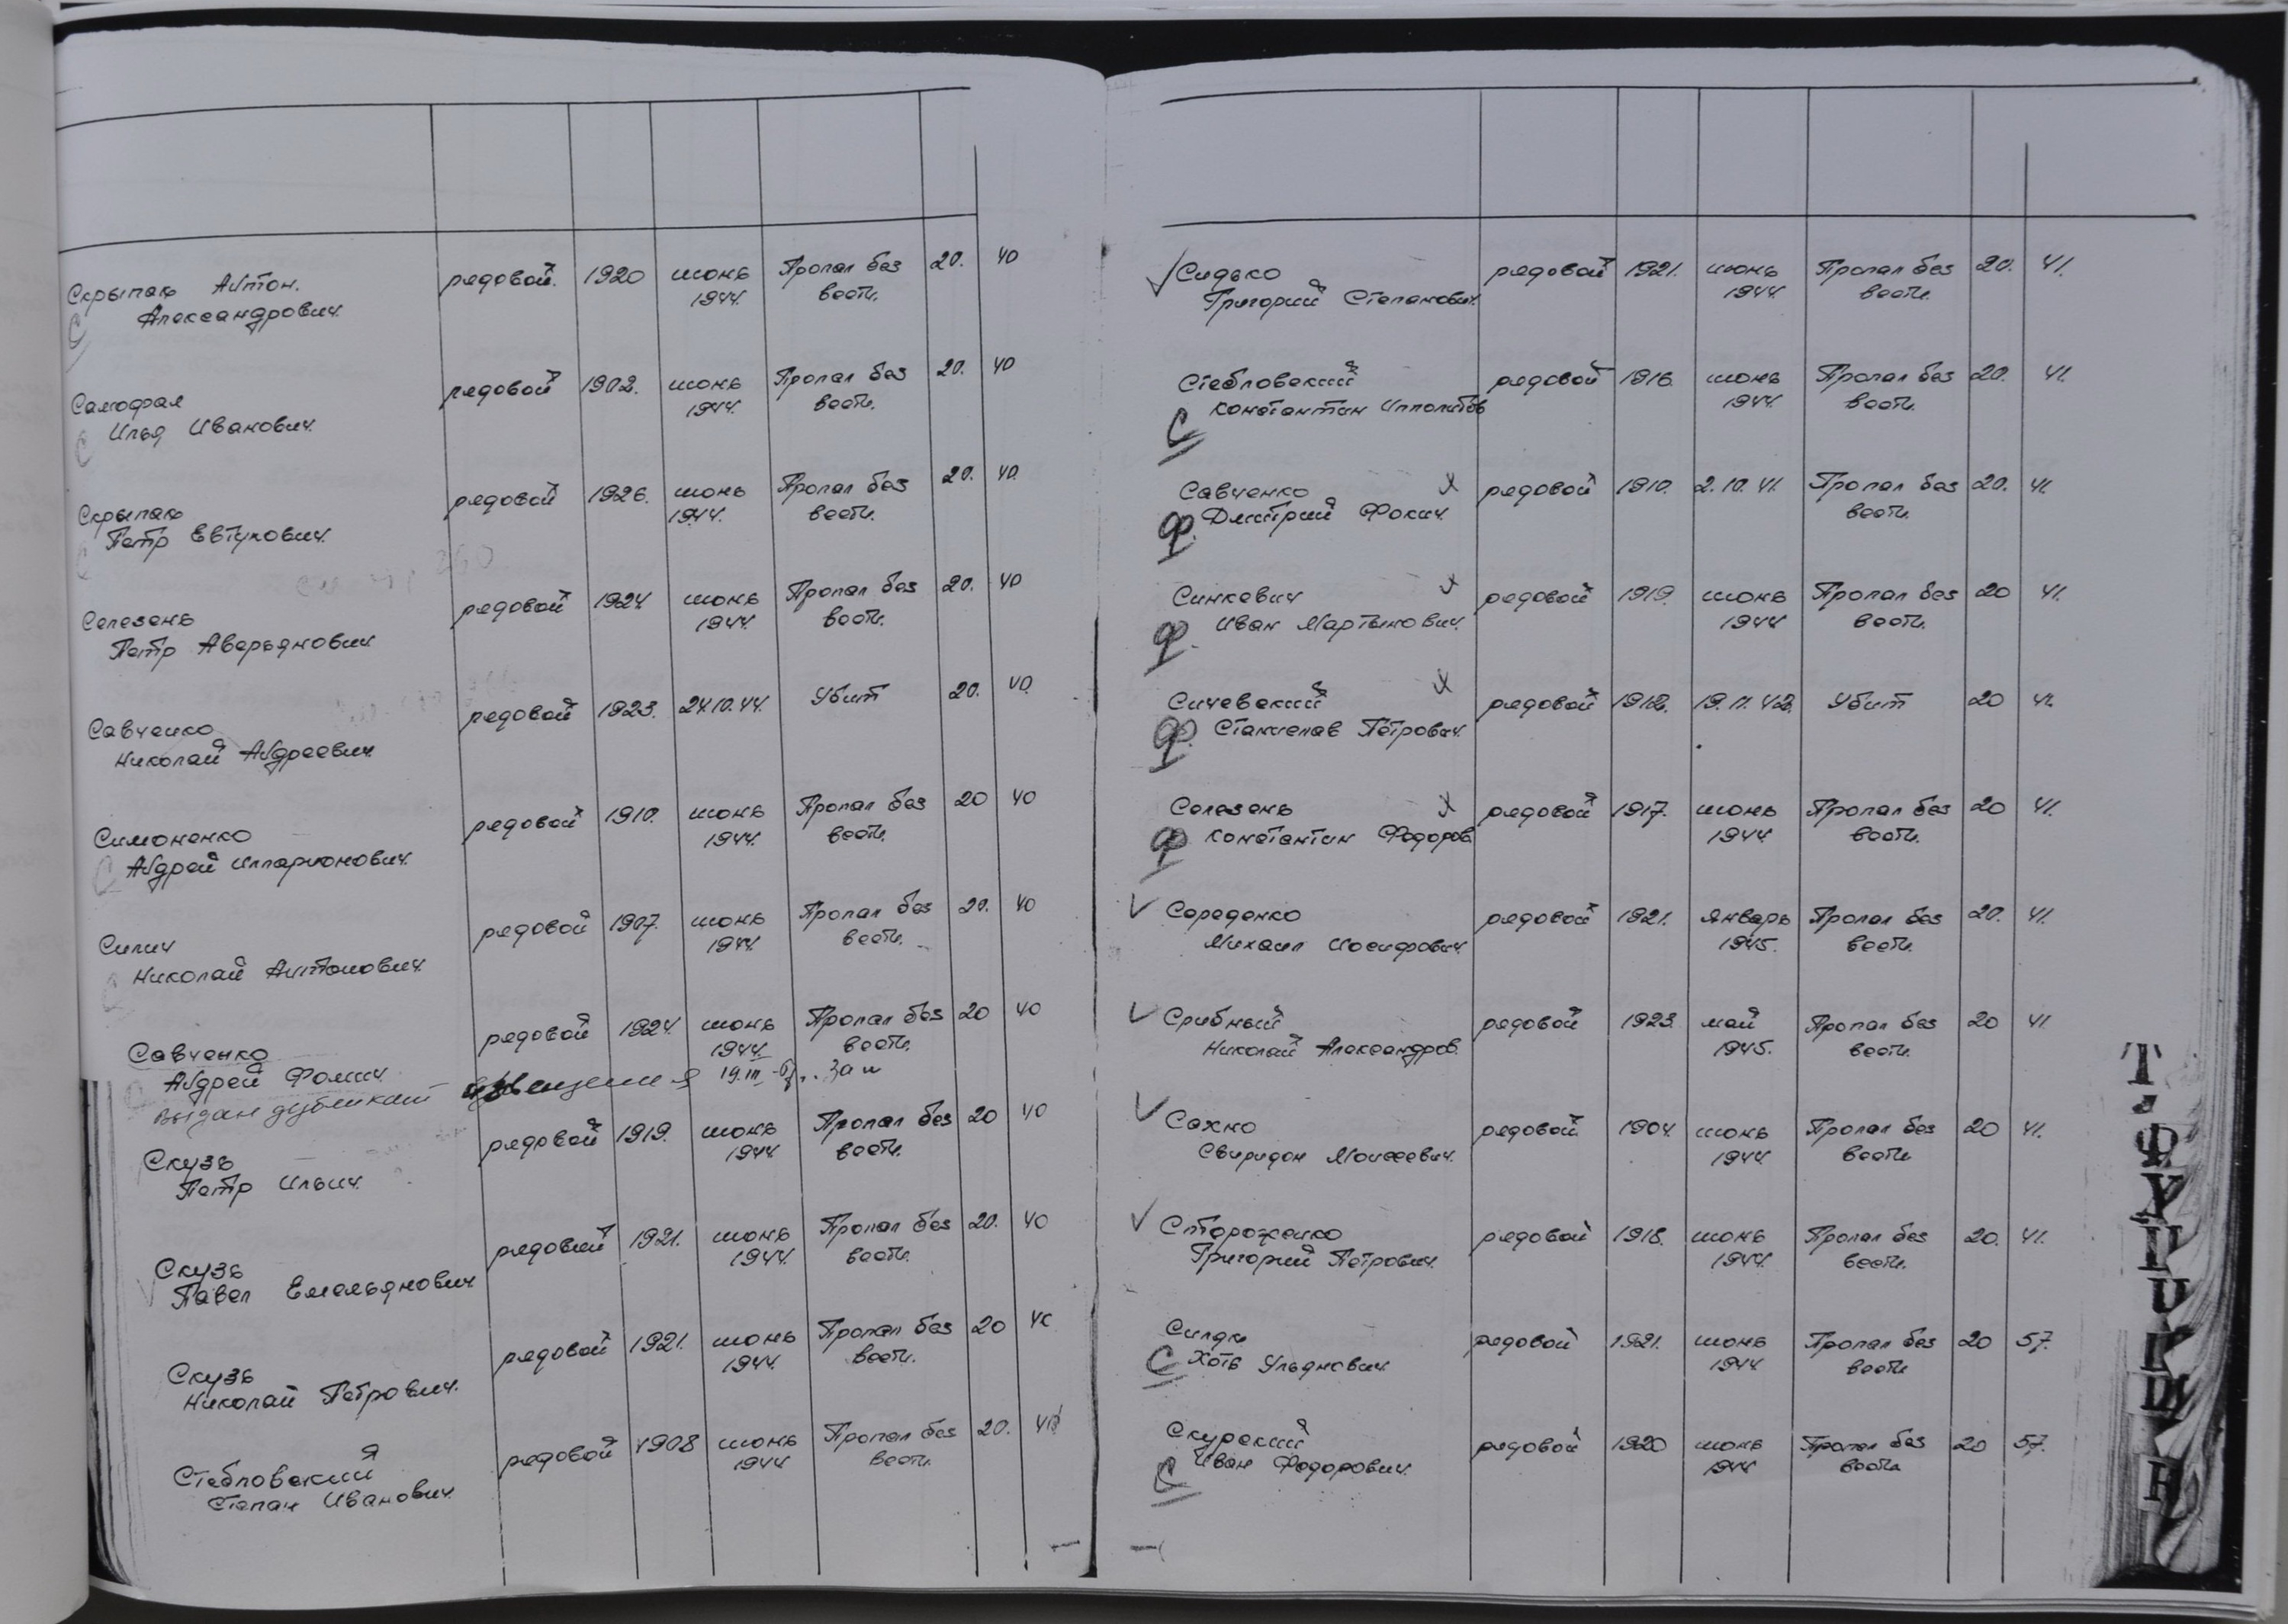 Скрыпак Антон. рядовой. 1920 июнь Пропал без 20. 40
Александрович. 1944. вести.
С
Самофал рядовой 1902. июнь Пропал без 20. 40
Илья Иванович. 1944. вести.
С
Скрыпак рядовой 1926. июнь Пропал без 20. 40
Петр Евтухович. 1944. вести.
С
Селезень рядовой 1924 июнь Пропал без 20. 40
Петр Аверьянович 1944. вести.
Савченко рядовой 1923. 24.10.44. Убит 20. 40
Николай Андреевич.
Симоненко рядовой 1910. июнь Пропал без 20 40
Андрей Илларионович. 1944. вести.
С
Силич рядовой 1907. июнь Пропал без 20. 40
Николай Антонович. 1944. вести.
С
Савченко рядовой 1924. июнь Пропал без 20 40
Андрей Фомич. 1944. вести.
выдан дубликат извещения 19.III
Скузь рядовой 1919. июнь Пропал без 20 40
Петр Ильич. 1944 вести.
Скузь рядовой 1921. июнь Пропал без 20. 40
Павел Емельянович 1944. вести.
Скузь рядовой 1921. июнь Пропал без 20 40
Николай Петрович. 1944. вести.
Стебловский рядовой 1908 июнь Пропал без 20. 40
Степан Иванович. 1944 вести.
Сидько рядовой 1921. июнь Пропал без 20. 41.
Григорий Степанович. 1944. вести.
Стебловский рядовой 1916. июнь Пропал без 20. 41.
Константин Ипполитов 1944. вести.
С
Савченко х рядовой 1910. 2.10.41. Пропал без 20. 41.
Дмитрий Фокич. вести.
ф.
Синкевич х рядовой 1919. июнь Пропал без 20 41.
Иван Мартынович. 1944 вести.
ф.
Сичевский х рядовой 1912. 19.11.42. Убит 20 41.
Станислав Петрович.
ф.
Селезень х рядовой 1917. июнь Пропал без 20 41.
Константин Федоров. 1944. вести.
ф
Середенко рядовой 1921. январь Пропал без 20. 41.
Михаил Иосифович. 1945. вести.
Срибный рядовой 1923. май Пропал без 20 41
Николай Александров. 1945. вести.
Сахно рядовой. 1904. июнь Пропал без 20 41.
Свиридон Моисеевич. 1944. вести
Стороженко рядовой 1918. июнь Пропал без 20. 41.
Григорий Петрович. 1944. вести.
рядовой 1921. июнь Пропал без 20 57.
С Ульянович. 1944 вести
Скурский рядовой 1920 июнь Пропал без 20 57.
Иван Федорович. 1944 вести
С